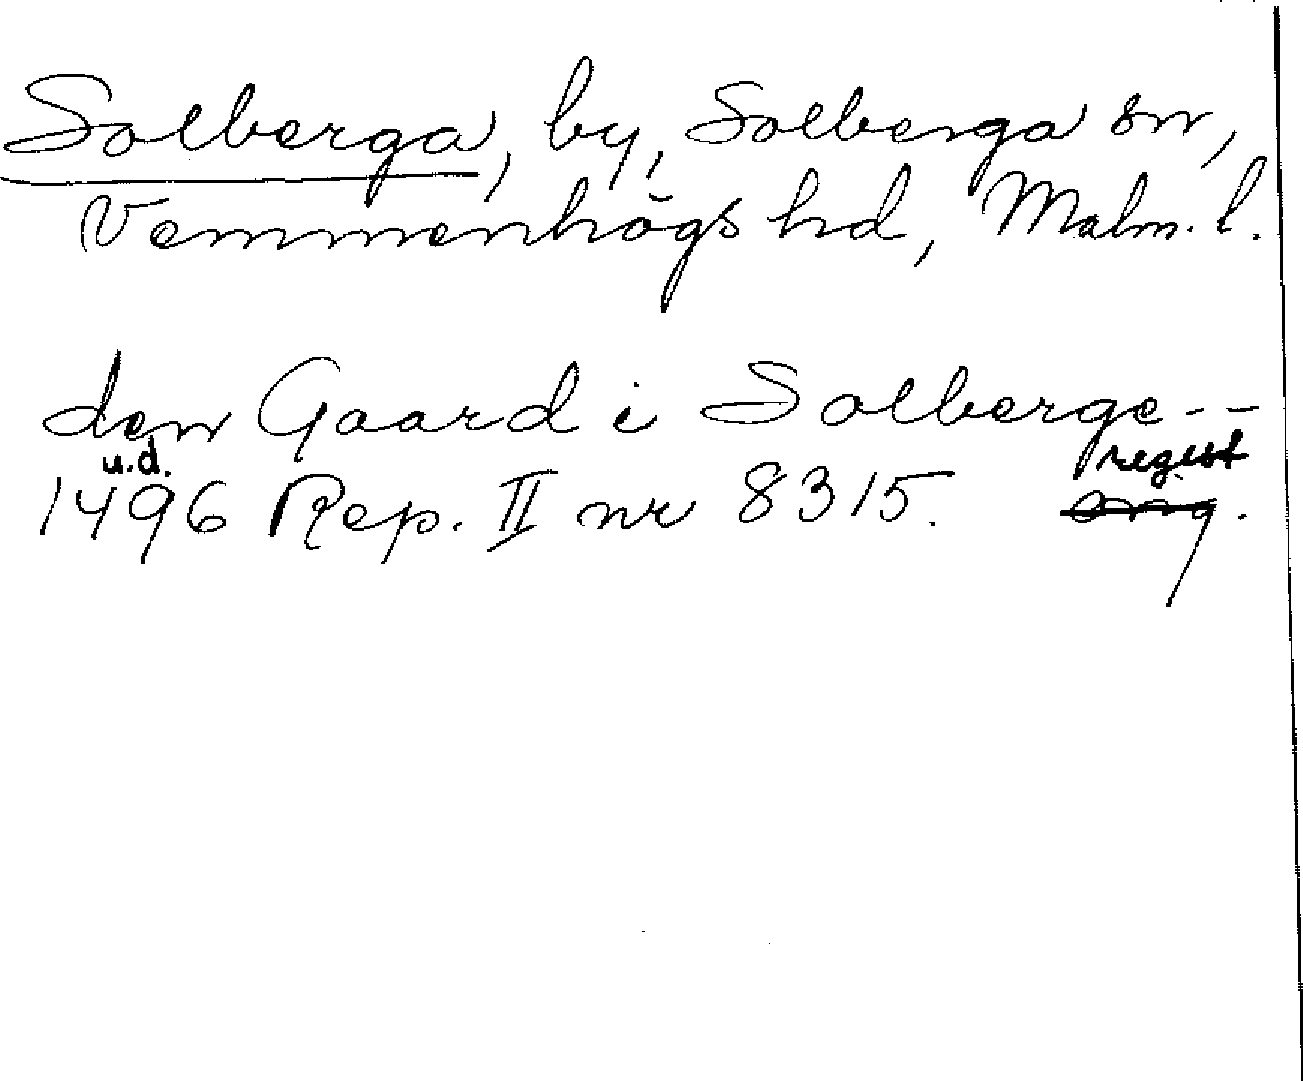 Solberga, by, Solberga sn,
Vemmenhögs hd, Malm. l.
den Gaard i Solberge--
u.d.
regest
1496 Rep. II nr 8315.